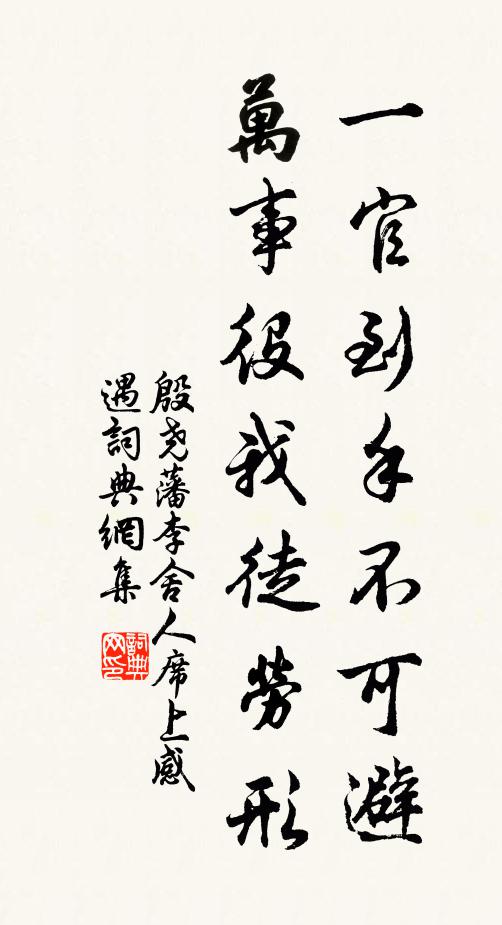 一官到手不可避
萬事役我徒勞形
殷堯藩李舍人席上感
遇詞典網集
詞典网印